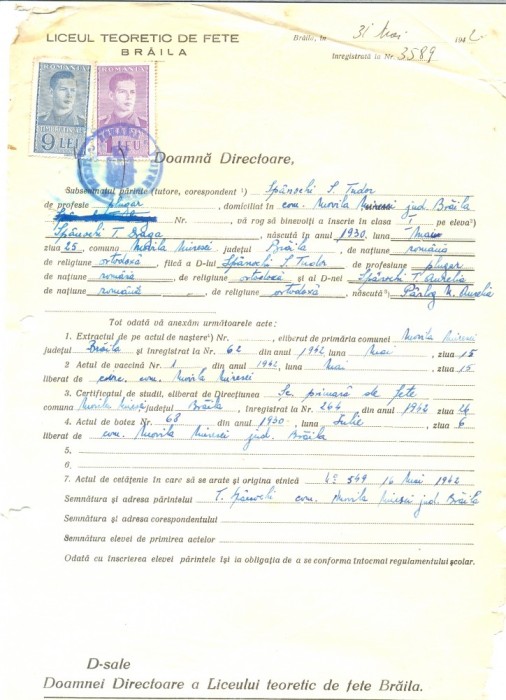 LICEUL TEORETIC DE FETE
BRĂILA
Brăila, în 31 Mai 1942
înregistrată la Nr. 3589
ROMANIA ROMANIA
9 LEI 1 LEU
Doamnă Directoare,
Subsemnatul părinte (tutore, corespondent ¹) Spânochi S. Tudor
de profesie plugar, domiciliat în com. Movila Miresei jud. Brăila
Nr. , vă rog să binevoiți a înscrie în clasa I pe eleva²)
Spânochi T. născută în anul 1930, luna Mai
ziua 25, comuna Movila Miresei județul Brăila, de națiune română
de religiune ortodoxă, fiică a D-lui Spânochi S. Tudor de profesiune plugar
de națiune română, de religiune ortodoxă și al D-nei Spânochi T. Aurelia
de națiune română, de religiune ortodoxă, născută³) Aurelia
Tot odată vă anexăm următoarele acte:
1. Extractul de pe actul de naștere¹) Nr. , eliberat de primăria comunei Movila Miresei
județul Brăila și înregistrat la Nr. 62 din anul 1942, luna Mai, ziua 15
2. Actul de vaccină Nr. 1 din anul 1942, luna Mai, ziua 15
liberat de com. Movila Miresei
3. Certificatul de studii, eliberat de Direcțiunea Șc. primară de fete
comuna Movila Miresei județul Brăila, înregistrat la Nr. 264 din anul 1942 ziua 26
4. Actul de botez Nr. 68 din anul 1930, luna Iulie, ziua 6
liberat de com. Movila Miresei jud. Brăila
5.
6.
7. Actul de cetățenie în care să se arate și origina etnică 549 16 Mai 1942
Semnătura și adresa părintelui T. Spânochi com. Movila Miresei jud. Brăila
Semnătura și adresa corespondentului
Semnătura elevei de primirea actelor
Odată cu înscrierea elevei părintele își ia obligația de a se conforma întocmai regulamentului școlar.
D-sale
Doamnei Directoare a Liceului teoretic de fete Brăila.